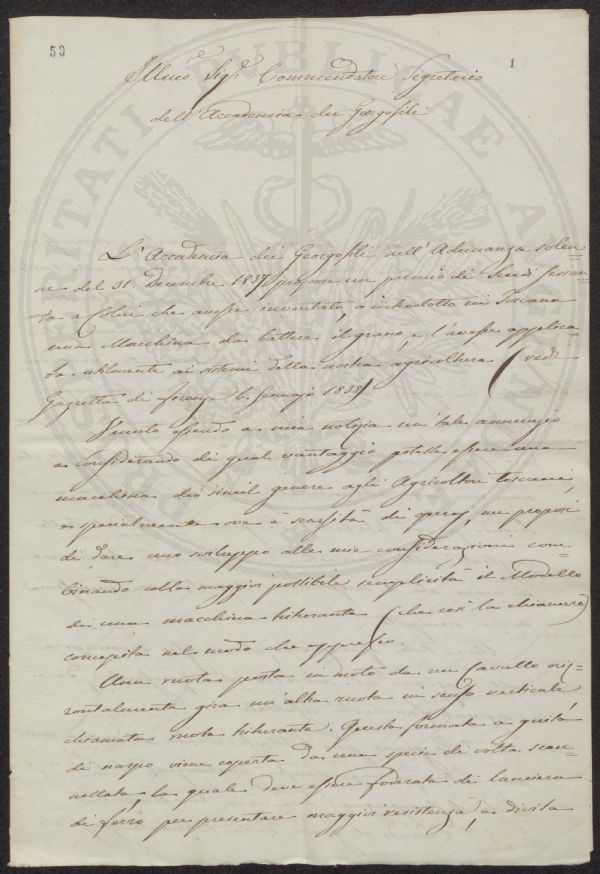 50
1
Illmo. Sigr. Commendatore Segretario
dell'Accademia dei Georgofili
L'Accademia dei Georgofili nell'Adunanza solen=
ne del 31. Decembre 1837 propose un premio di Scudi Sessan=
ta a Colui che avesse inventato, o introdotto in Toscana
una Macchina da battere il grano, e l'avesse applica=
ta utilmente ai sistemi della nostra agricoltura (vedi
Gazzetta di Firenze 6. Gennajo 1838)
Venuto essendo a mia notizia un tale annunzio
e considerando di qual vantaggio potesse essere una
macchina di simil genere agli Agricoltori toscani,
e specialmente ove è scarsità di , mi proposi
di dare uno sviluppo alle mie considerazioni com=
binando colla maggior possibile semplicità il Modello
di una macchina triturante (che così la chiamerò)
concepita nel modo che appresso.
Una ruota posta in moto da un Cavallo oriz=
zontalmente gira un'altra ruota in senso verticale
chiamata ruota triturante. Questa formata a guisa
di naspo viene coperta da una specie di volta scan=
nellata la quale deve essere foderata di lamiera
di ferro per presentare maggior resistenza, e divisa
PROSPERITATI PUBLICAE AUGENDAE